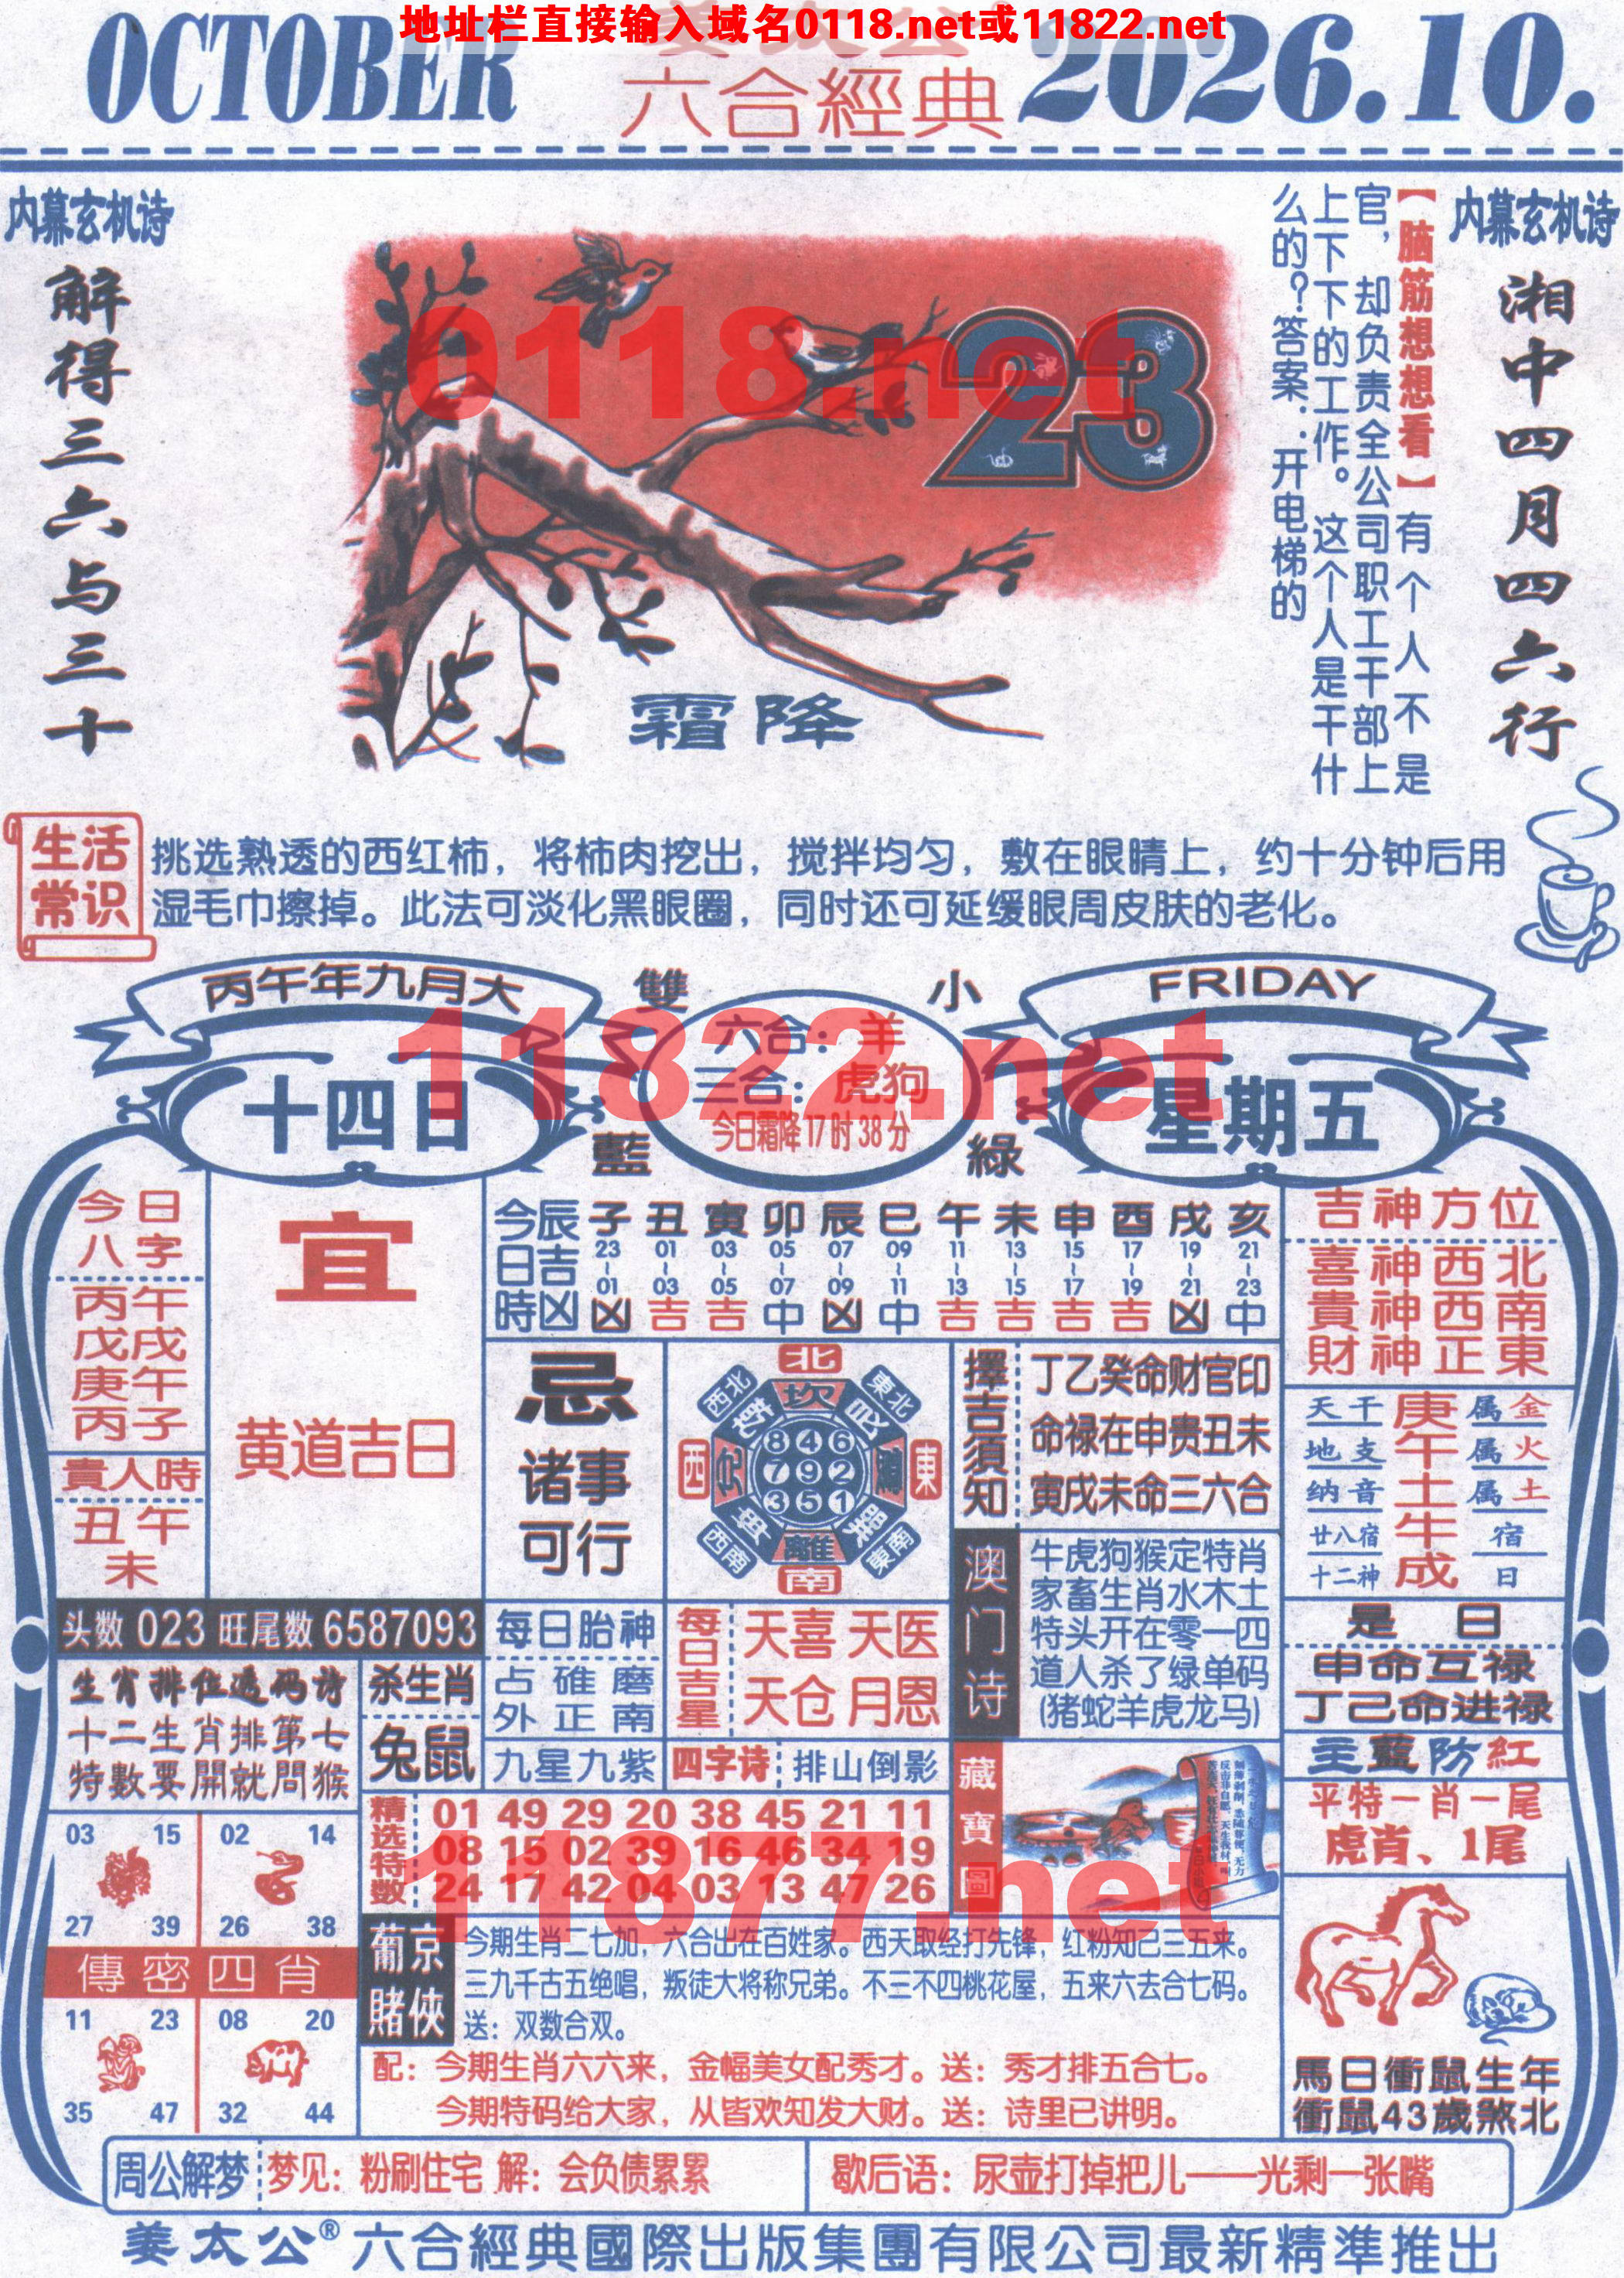 地址栏直接输入域名0118.net或11822.net
OCTOBER
姜太公
六合經典
2026.10.
内幕玄机诗
解得三六与三十
0118.net
23
霜降
【脑筋想想看】有个人不是
官，却负责全公司职工干部上
上下下的工作。这个人是干什
么的？答案：开电梯的
内幕玄机诗
湘中四月四六行
生活
常识
挑选熟透的西红柿，将柿肉挖出，搅拌均匀，敷在眼睛上，约十分钟后用
湿毛巾擦掉。此法可淡化黑眼圈，同时还可延缓眼周皮肤的老化。
丙午年九月大
十四日
雙
小
藍
綠
六合：羊
三合：虎狗
今日霜降17时38分
11822.net
FRIDAY
星期五
今日
八字
丙午
戊戌
庚午
丙子
貴人時
丑午
未
宜
黄道吉日
今辰
日吉
時凶
子 丑 寅 卯 辰 巳 午 未 申 酉 戌 亥
23~01 01~03 03~05 05~07 07~09 09~11 11~13 13~15 15~17 17~19 19~21 21~23
凶 吉 吉 中 凶 中 吉 吉 吉 吉 凶 中
忌
诸事
可行
北
西北
東北
坎
西
東
846
792
351
離
西南
東南
南
擇吉須知
丁乙癸命财官印
命禄在申贵丑未
寅戌未命三六合
吉神方位
喜神西北
貴神西南
財神正東
天干 庚 属金
地支 午 属火
纳音 土 属土
廿八宿 牛 宿
十二神 成 日
澳门诗
牛虎狗猴定特肖
家畜生肖水木土
特头开在零一四
道人杀了绿单码
(猪蛇羊虎龙马)
是日
申命互禄
丁己命进禄
主藍防紅
平特一肖一尾
虎肖、1尾
头数 023 旺尾数 6587093
生肖排位透码诗
十二生肖排第七
特數要開就問猴
杀生肖
兔鼠
每日胎神
占碓磨
外正南
每日吉星
天喜 天医
天仓 月恩
九星九紫
四字诗
排山倒影
精选特数
01 49 29 20 38 45 21 11
08 15 02 39 16 46 34 19
24 17 42 04 03 13 47 26
11877.net
藏寶圖
03 15
27 39
02 14
26 38
傳密四肖
11 23
35 47
08 20
32 44
葡京
賭俠
今期生肖二七加，六合出在百姓家。西天取经打先锋，红粉知己三五来。
三九千古五绝唱，叛徒大将称兄弟。不三不四桃花屋，五来六去合七码。
送：双数合双。
配：今期生肖六六来，金幅美女配秀才。送：秀才排五合七。
今期特码给大家，从皆欢知发大财。送：诗里已讲明。
馬日衝鼠生年
衝鼠43歲煞北
周公解梦
梦见：粉刷住宅 解：会负债累累
歇后语：尿壶打掉把儿——光剩一张嘴
姜太公®六合經典國際出版集團有限公司最新精準推出